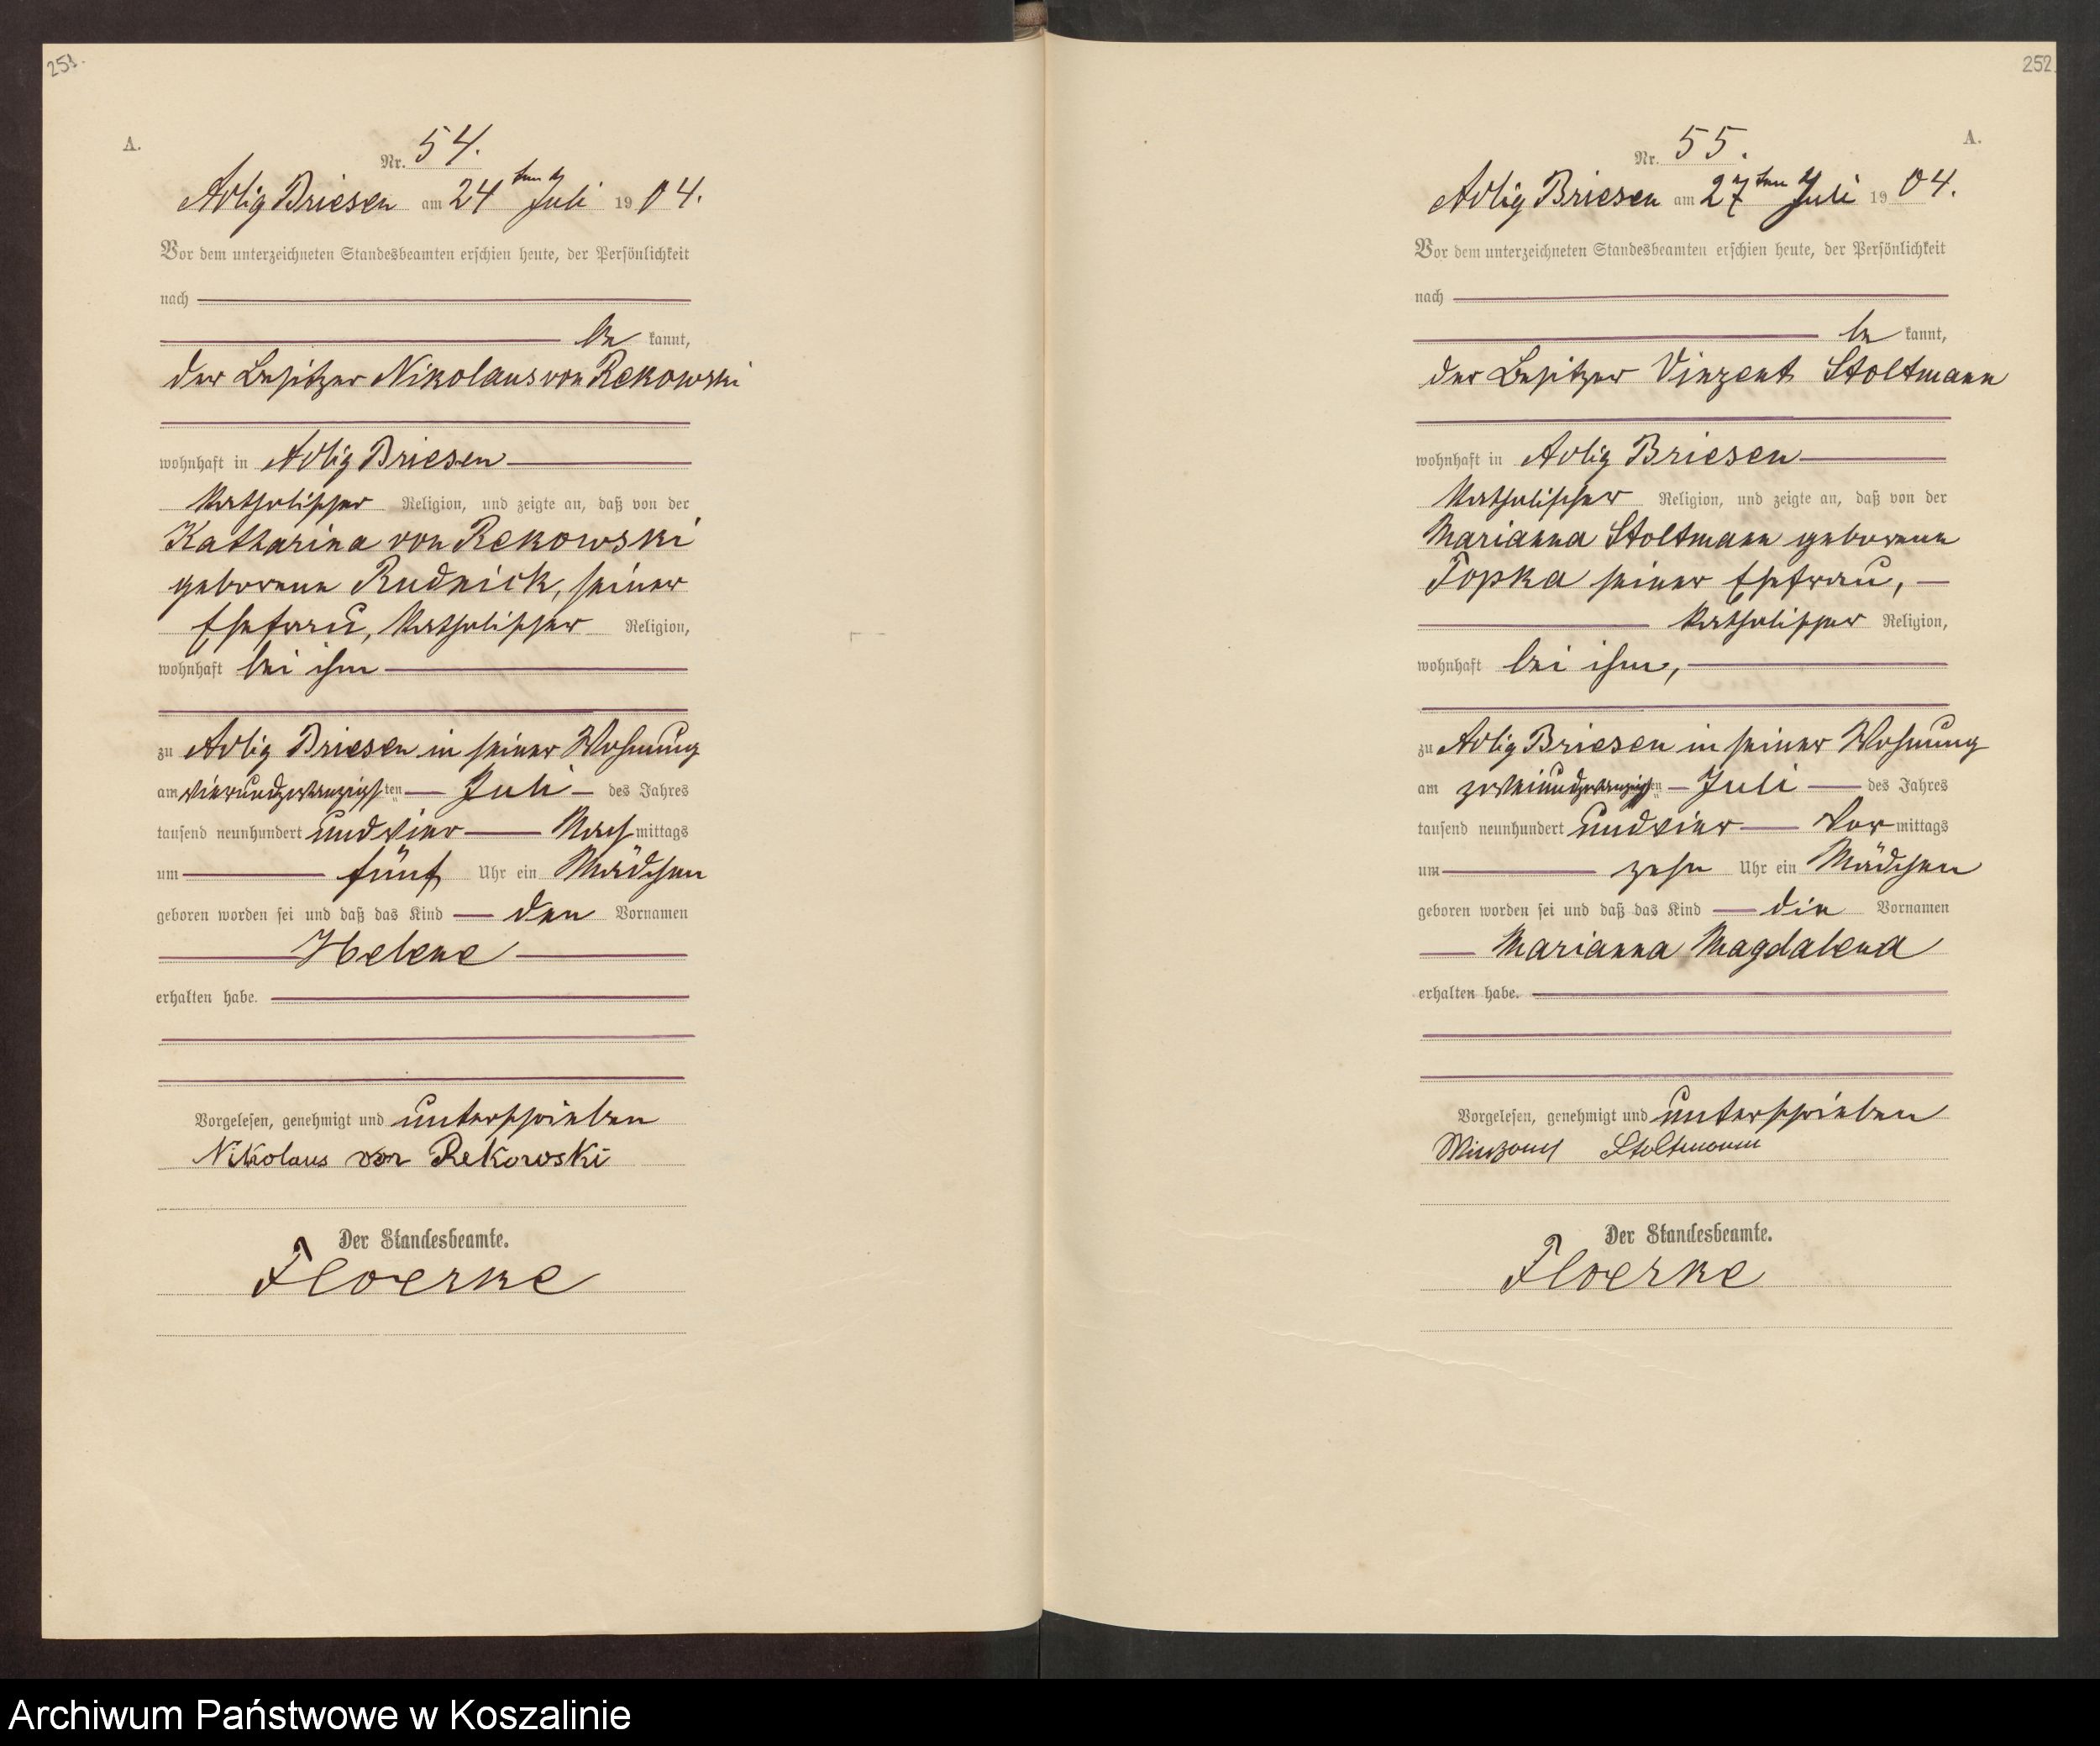 251.
A.
Nr. 54.
Adlig Briesen am 24ten Juli 1904.
Vor dem unterzeichneten Standesbeamten erschien heute, der Persönlichkeit
nach
be kannt,
der Besitzer Nikolaus von Rekowski
wohnhaft in Adlig Briesen
katholischer Religion, und zeigte an, daß von der
Katharina von Rekowski
geborenen Rudnick, seiner
Ehefrau, katholischer Religion,
wohnhaft bei ihm
zu Adlig Briesen in seiner Wohnung
am vierundzwanzigsten Juli des Jahres
tausend neunhundert und vier Nach mittags
um fünf Uhr ein Mädchen
geboren worden sei und daß das Kind den Vornamen
Helene
erhalten habe.
Vorgelesen, genehmigt und unterschrieben
Nikolaus von Rekowski
Der Standesbeamte.
Floerke
252.
A.
Nr. 55.
Adlig Briesen am 27ten Juli 1904.
Vor dem unterzeichneten Standesbeamten erschien heute, der Persönlichkeit
nach
be kannt,
der Besitzer Vinzent Stoltmann
wohnhaft in Adlig Briesen
katholischer Religion, und zeigte an, daß von der
Marianna Stoltmann geborenen
Topka seiner Ehefrau,
katholischer Religion,
wohnhaft bei ihm,
zu Adlig Briesen in seiner Wohnung
am zweiundzwanzigsten Juli des Jahres
tausend neunhundert und vier Vor mittags
um zehn Uhr ein Mädchen
geboren worden sei und daß das Kind die Vornamen
Marianna Magdalena
erhalten habe.
Vorgelesen, genehmigt und unterschrieben
Stoltmann
Der Standesbeamte.
Floerke
Archiwum Państwowe w Koszalinie